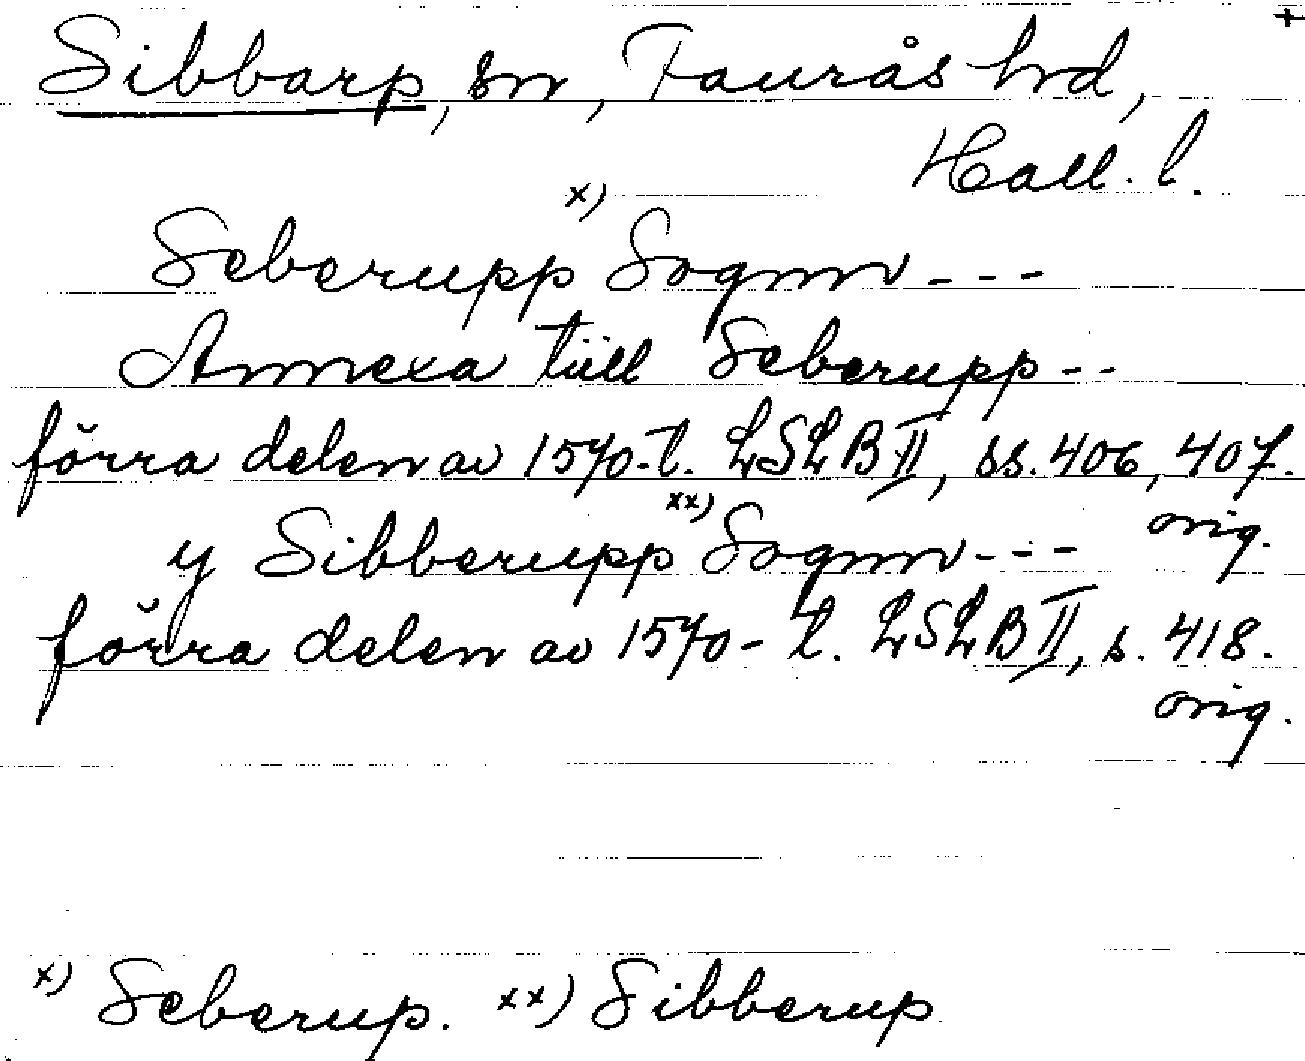 +
Sibbarp, sn, Faurås hrd,
Hall. l.
Seberupp x) Sognn - - -
Annexa tiill Seberupp - -
förra delen av 1570-t. LSLB II, ss. 406, 407.
orig.
y Sibberupp xx) Sognn - - -
förra delen av 1570-t. LSLB II, s. 418.
orig.
x) Seberup. xx) Sibberup